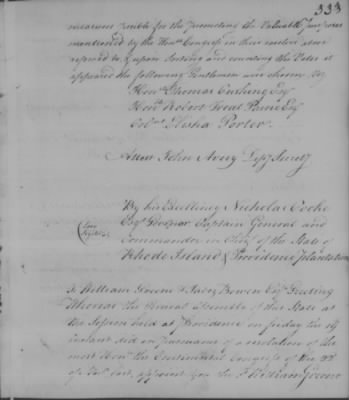 333
measures possible for the promoting the valuable purposes
mentioned by the Honble Congress in their resolve above
referred to, & upon sorting and counting the Votes it
appeared the following Gentlemen were chosen Vizt
Honble Thomas Cushing Esq
Honble Robert Treat Paine Esq
Colonel Elisha Porter
Attest John Avery Depy Secrety
By his Excellency Nicholas Cooke
Esqr Governor Captain General and
Commander in Chief of the State of
Rhode Island & Providence Plantations
To William Greene & Jabez Bowen Esqrs Greeting
Whereas the General Assembly of this State at
the Session held at Providence on friday the 19
instant did in pursuance of a resolution of the
most Honble the Continental Congress of the 22d
of last, appoint you the sd William Greene